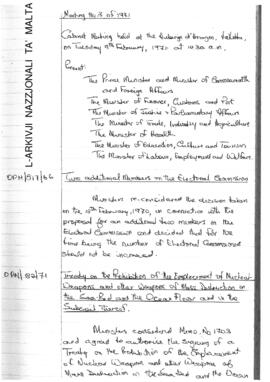 L-ARKIVJI NAZZJONALI TA' MALTA
Meeting No 3 of 1971
Cabinet Meeting held at the Auberge d'Aragon, Valletta,
on Tuesday 9th February, 1971 at 10.30 a.m.
Present:
The Prime Minister and Minister of Commonwealth
and Foreign Affairs
The Minister of Finance, Customs and Port
The Minister of Justice & Parliamentary Affairs
The Minister of Trade, Industry and Agriculture
The Minister of Health
The Minister of Education, Culture and Tourism
The Minister of Labour, Employment and Welfare.
OPM/517/66
Two additional Members on the Electoral Commission
Ministers reconsidered the decision taken
on the February, 1970, in connection with the
proposal for an additional two members on the
Electoral Commission and decided that for the
time being the number of Electoral Commissioners
should not be increased.
OPM/182/71
Treaty on the Prohibition of the Emplacement of Nuclear
Weapons and other Weapons of Mass Destruction on
the Sea Bed and the Ocean Floor and in the
Subsoil Thereof.
Ministers considered Memo. No 1703
and agreed to authorise the signing of a
Treaty on the Prohibition of the Emplacement
of Nuclear Weapons and other Weapons of
Mass Destruction on the Sea Bed and the Ocean